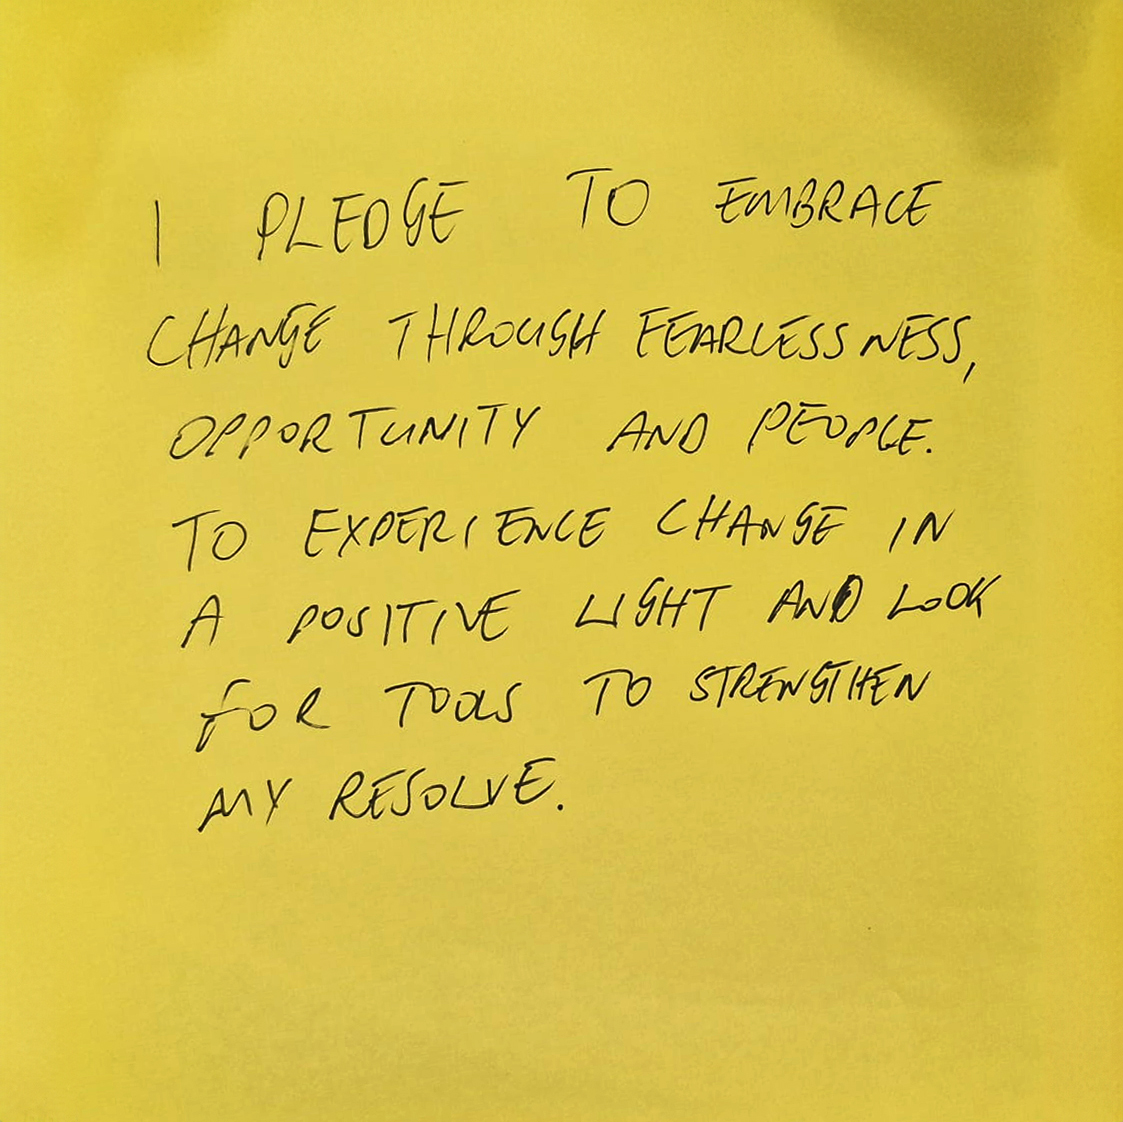 I PLEDGE TO EMBRACE
CHANGE THROUGH FEARLESSNESS,
OPPORTUNITY AND PEOPLE.
TO EXPERIENCE CHANGE IN
A POSITIVE LIGHT AND LOOK
FOR TOOLS TO STRENGTHEN
MY RESOLVE.